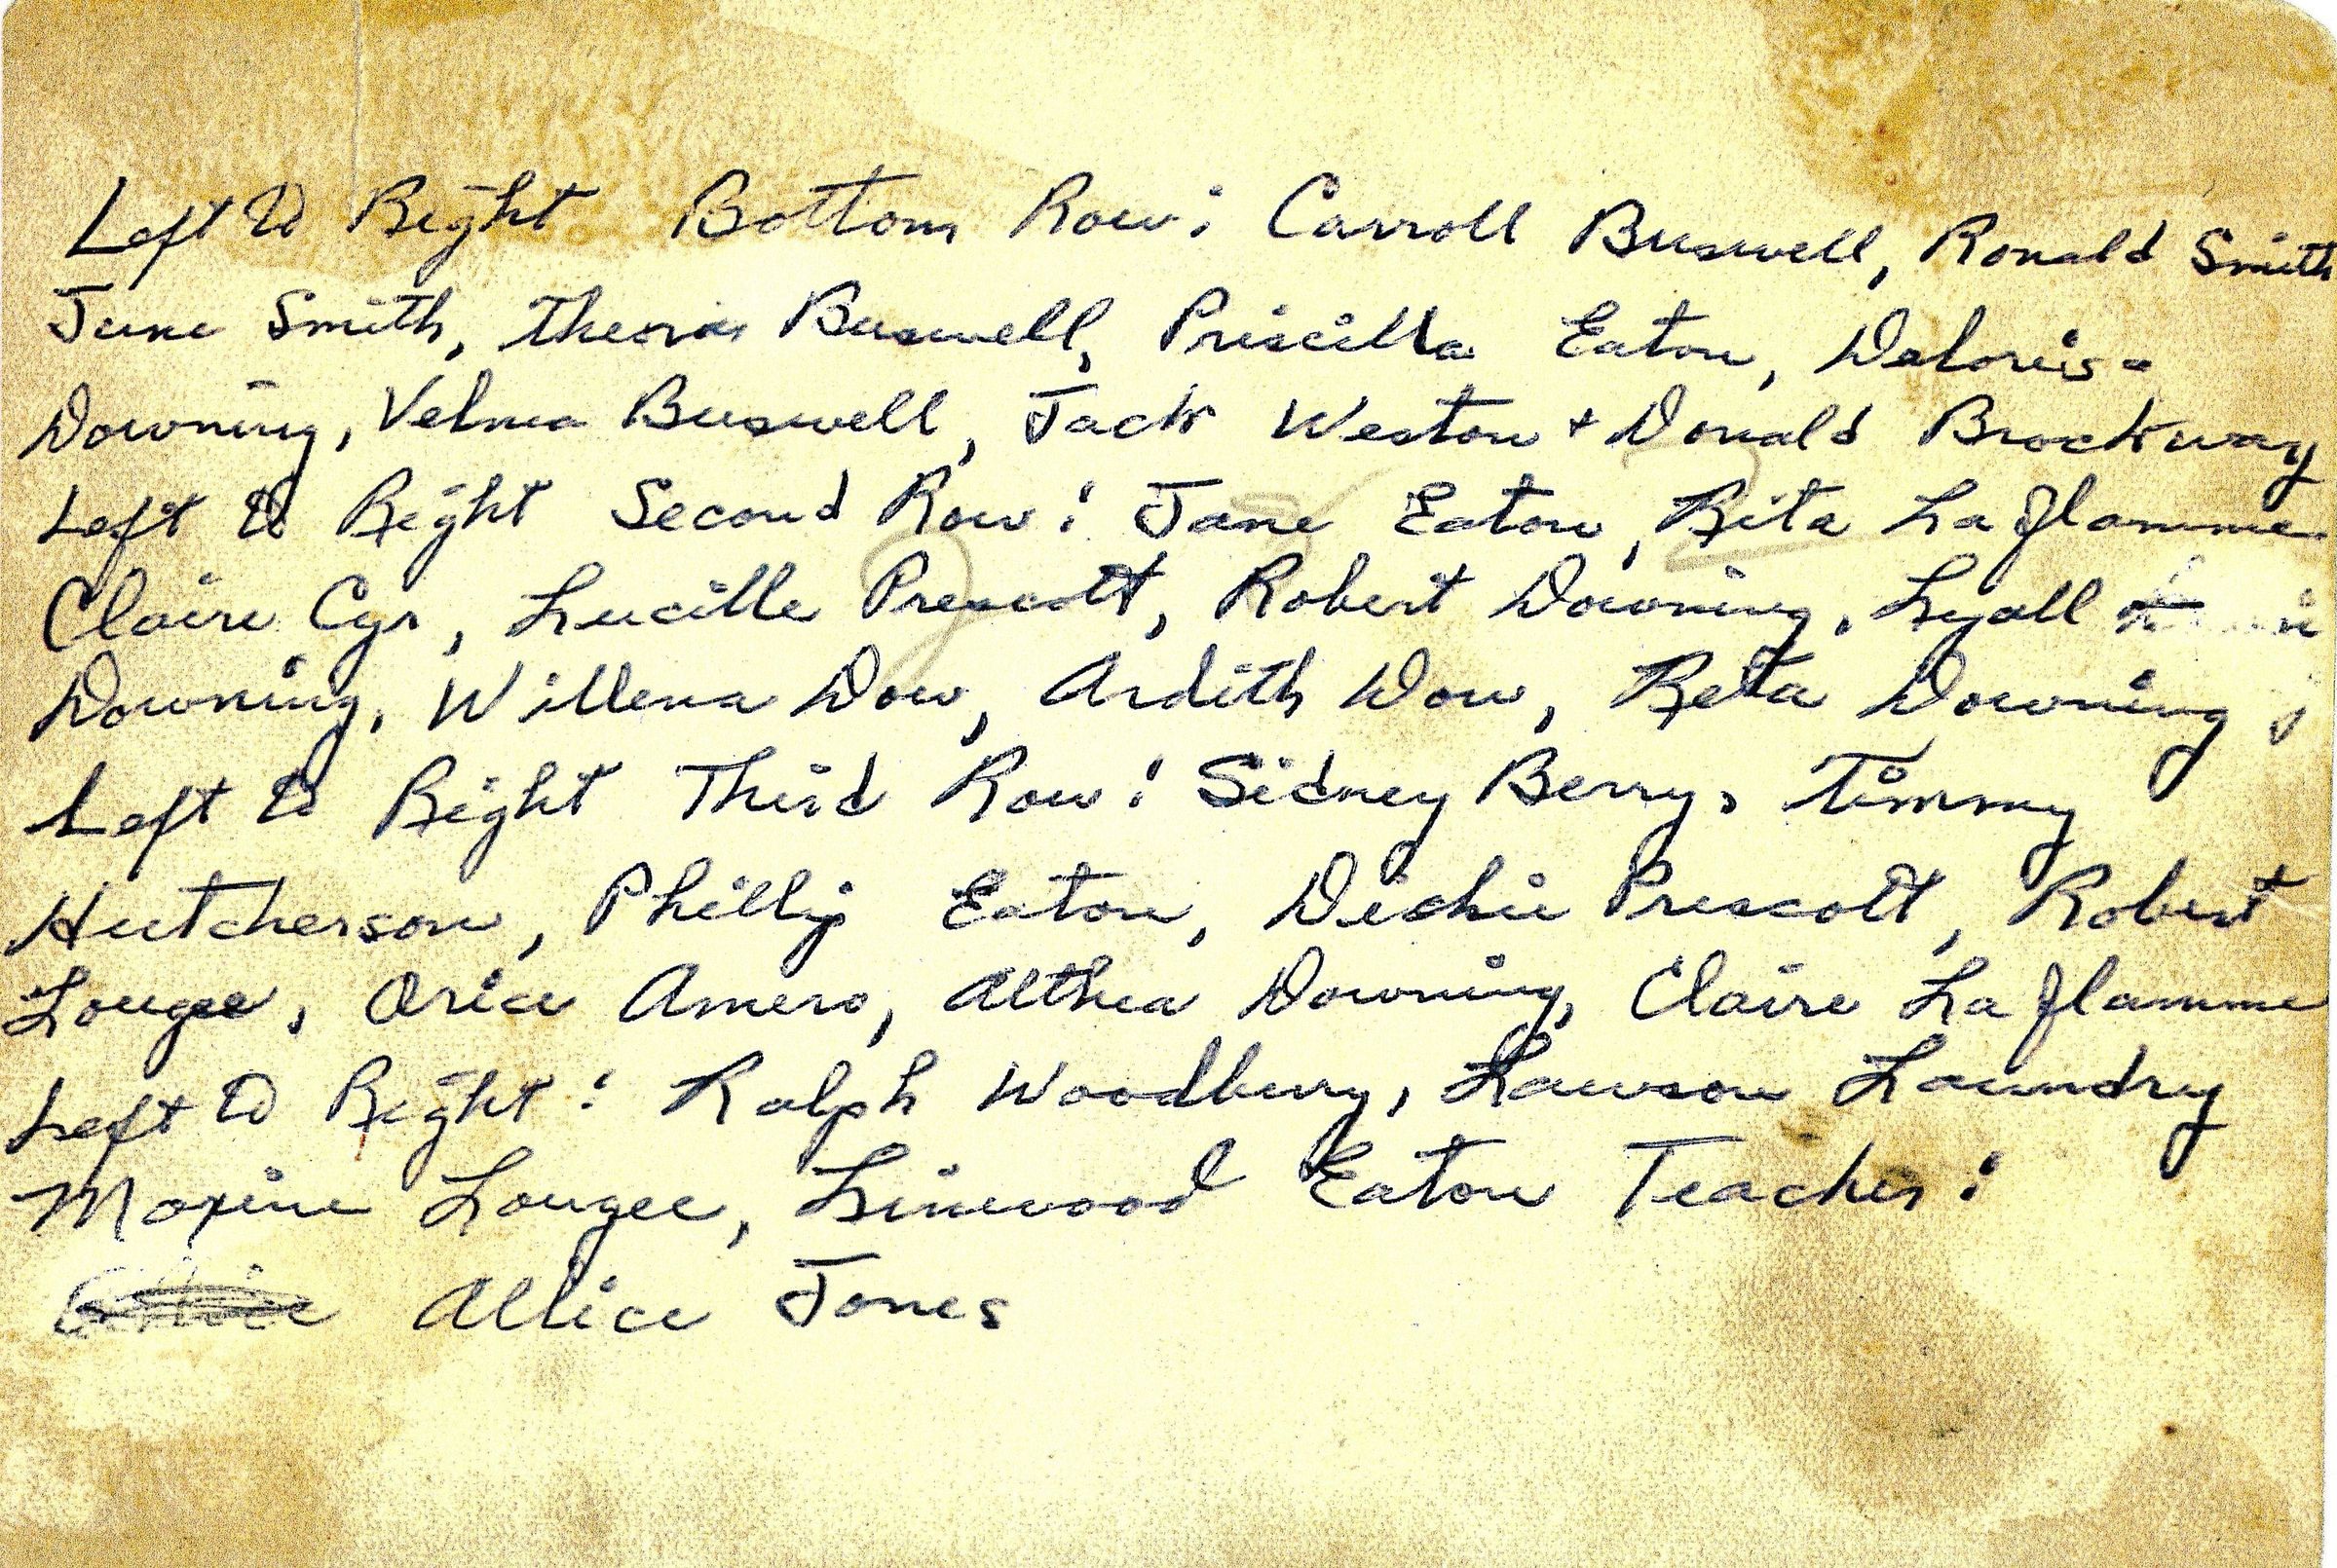 Left to Right Bottom Row: Carroll Buswell, Ronald Smith
June Smith, Theora Buswell, Priscilla Eaton, Deloris
Downing, Velma Buswell, Jack Weston + Donald Brockway
Left to Right Second Row: Jane Eaton, Rita La Flamme
Claire Cyr, Lucille Prescott, Robert Downing, Lyall
Downing, Willena Dow, Ardith Dow, Reta Downing
Left to Right Third Row: Sidney Berry, Timmy
Hutcherson, Phillip Eaton, Dickie Prescott, Robert
Lougee, Orice Amero, Althea Downing, Claire La Flamme
Left to Right: Ralph Woodbury, Lawson Laundry
Maxine Lougee, Linwood Eaton Teacher:
Allice Jones